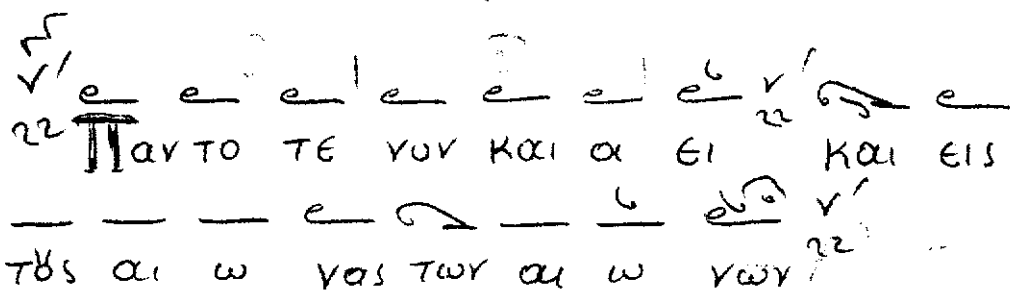 Παν το τε νυν και α ει και εις
τȣς αι ω νας των αι ω νων